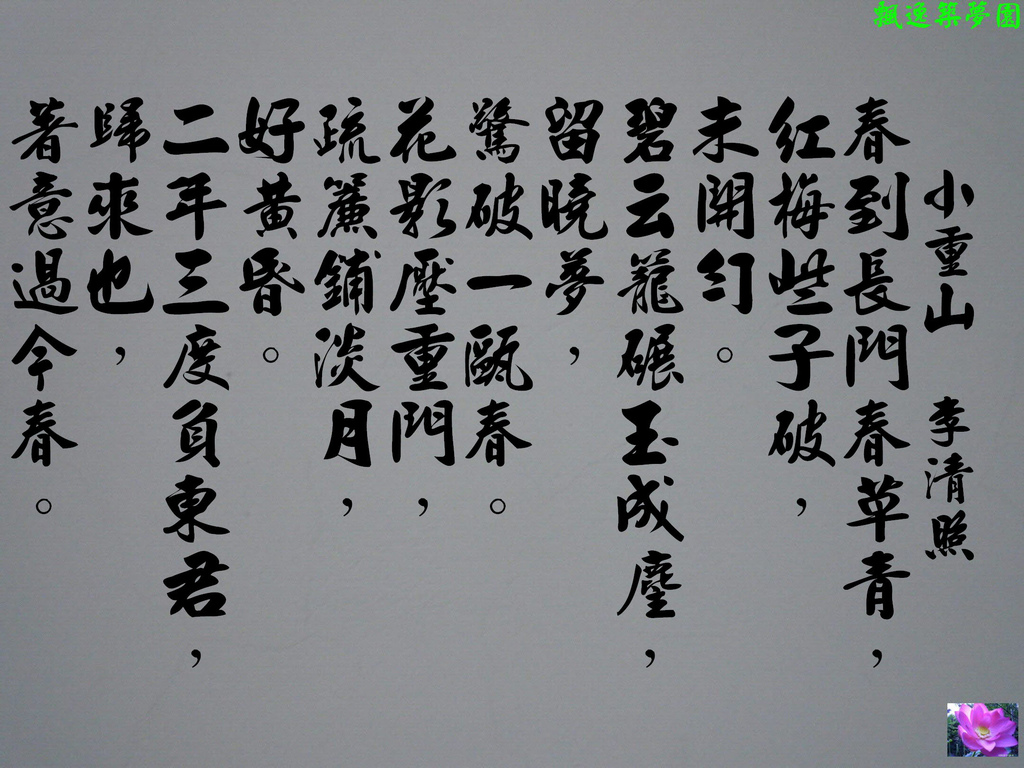 飄逸築夢園
小重山 李清照
春到長門春草青，
紅梅些子破，
未開勻。
碧云籠碾玉成塵，
留曉夢，
驚破一甌春。
花影壓重門，
疏簾鋪淡月，
好黃昏。
二年三度負東君，
歸來也，
著意過今春。